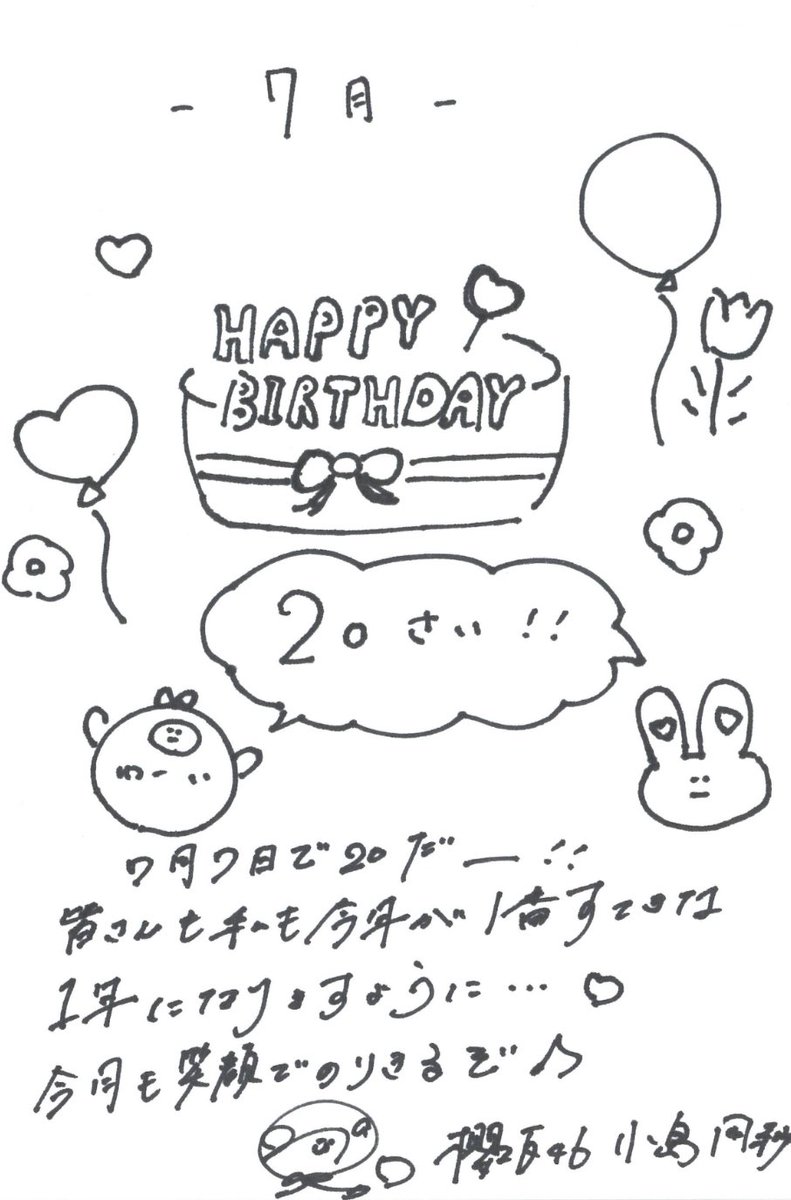 - 7月 -
HAPPY
BIRTHDAY
20さい!!
うーい
7月7日で20だー!!
皆さんも私も今年が1番すてきな
1年になりますように…♡
今月も笑顔でのりきるぞ♪
櫻坂46 小島凪紗